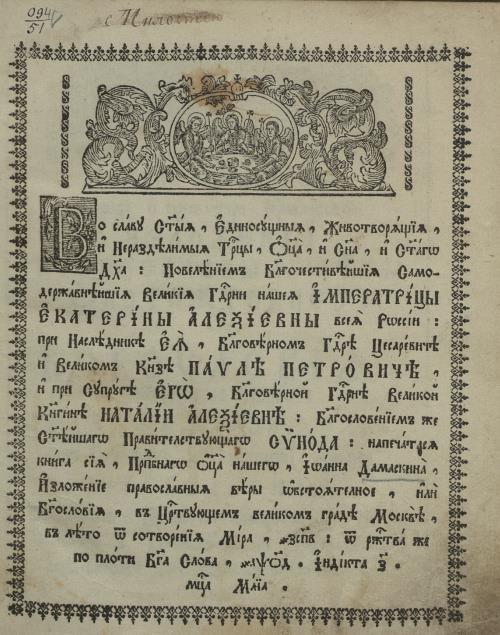 094
51
Во сла́вꙋ Ст҃ы́ѧ , Є҆диносꙋ́щныѧ , Животворѧ́щїѧ ,
и҆ Нераздѣли́мыѧ Трⷪ҇цы , Ѻ҆ц҃а̀ , и҆ Сн҃а , и҆ Ст҃а́гѡ
Дх҃а : Повелѣ́нїемъ Бл҃гочести́вѣйшїѧ Само-
держа́внѣйшїѧ Вели́кїѧ Гдⷭ҇рни на́шеѧ И҆МПЕРАТРИ́ЦЫ
Є҆КАТЕРИ́НЫ А҆ЛЕѮІ́ЕВНЫ всеѧ̀ Рѡссі́и :
при Наслѣ́дникѣ Є҆Ѧ̀ , Бл҃говѣ́рномъ Гдⷭ҇рѣ Цесаре́вичѣ
и҆ Вели́комъ Кн҃зѣ ПА́ѴЛѢ ПЕТРО́ВИЧѢ ,
и҆ при Сꙋпрꙋ́гѣ Є҆ГѠ̀ , Бл҃говѣ́рной Гдⷭ҇рнѣ Вели́кой
Кн҃ги́нѣ НАТА́ЛІИ А҆ЛЕѮІ́ЕВНѢ : Бл҃гослове́нїемъ же
Ст҃ѣ́йшагѡ Прави́телствꙋющагѡ СѴНО́ДА : напеча́тасѧ
кни́га сїѧ̀ , Прпⷣбнагѡ Ѻ҆ц҃а̀ на́шегѡ , І҆ѡа́нна Дамаскина̀ ,
И҆зложе́нїе правосла́вныѧ вѣ́ры ѡ҆бстоѧ́телное , и҆лѝ
Бг҃осло́вїѧ , въ Црⷭ҇твꙋющемъ вели́комъ гра́дѣ Москвѣ̀ ,
въ лѣ́то ѿ сотворе́нїѧ Мі́ра , ҂зспв : ѿ рждⷭ҇тва́ же
по пло́ти Бг҃а Сло́ва , ҂аѱод . І҆ндї́кта з .
мцⷭ҇а Ма́їа .